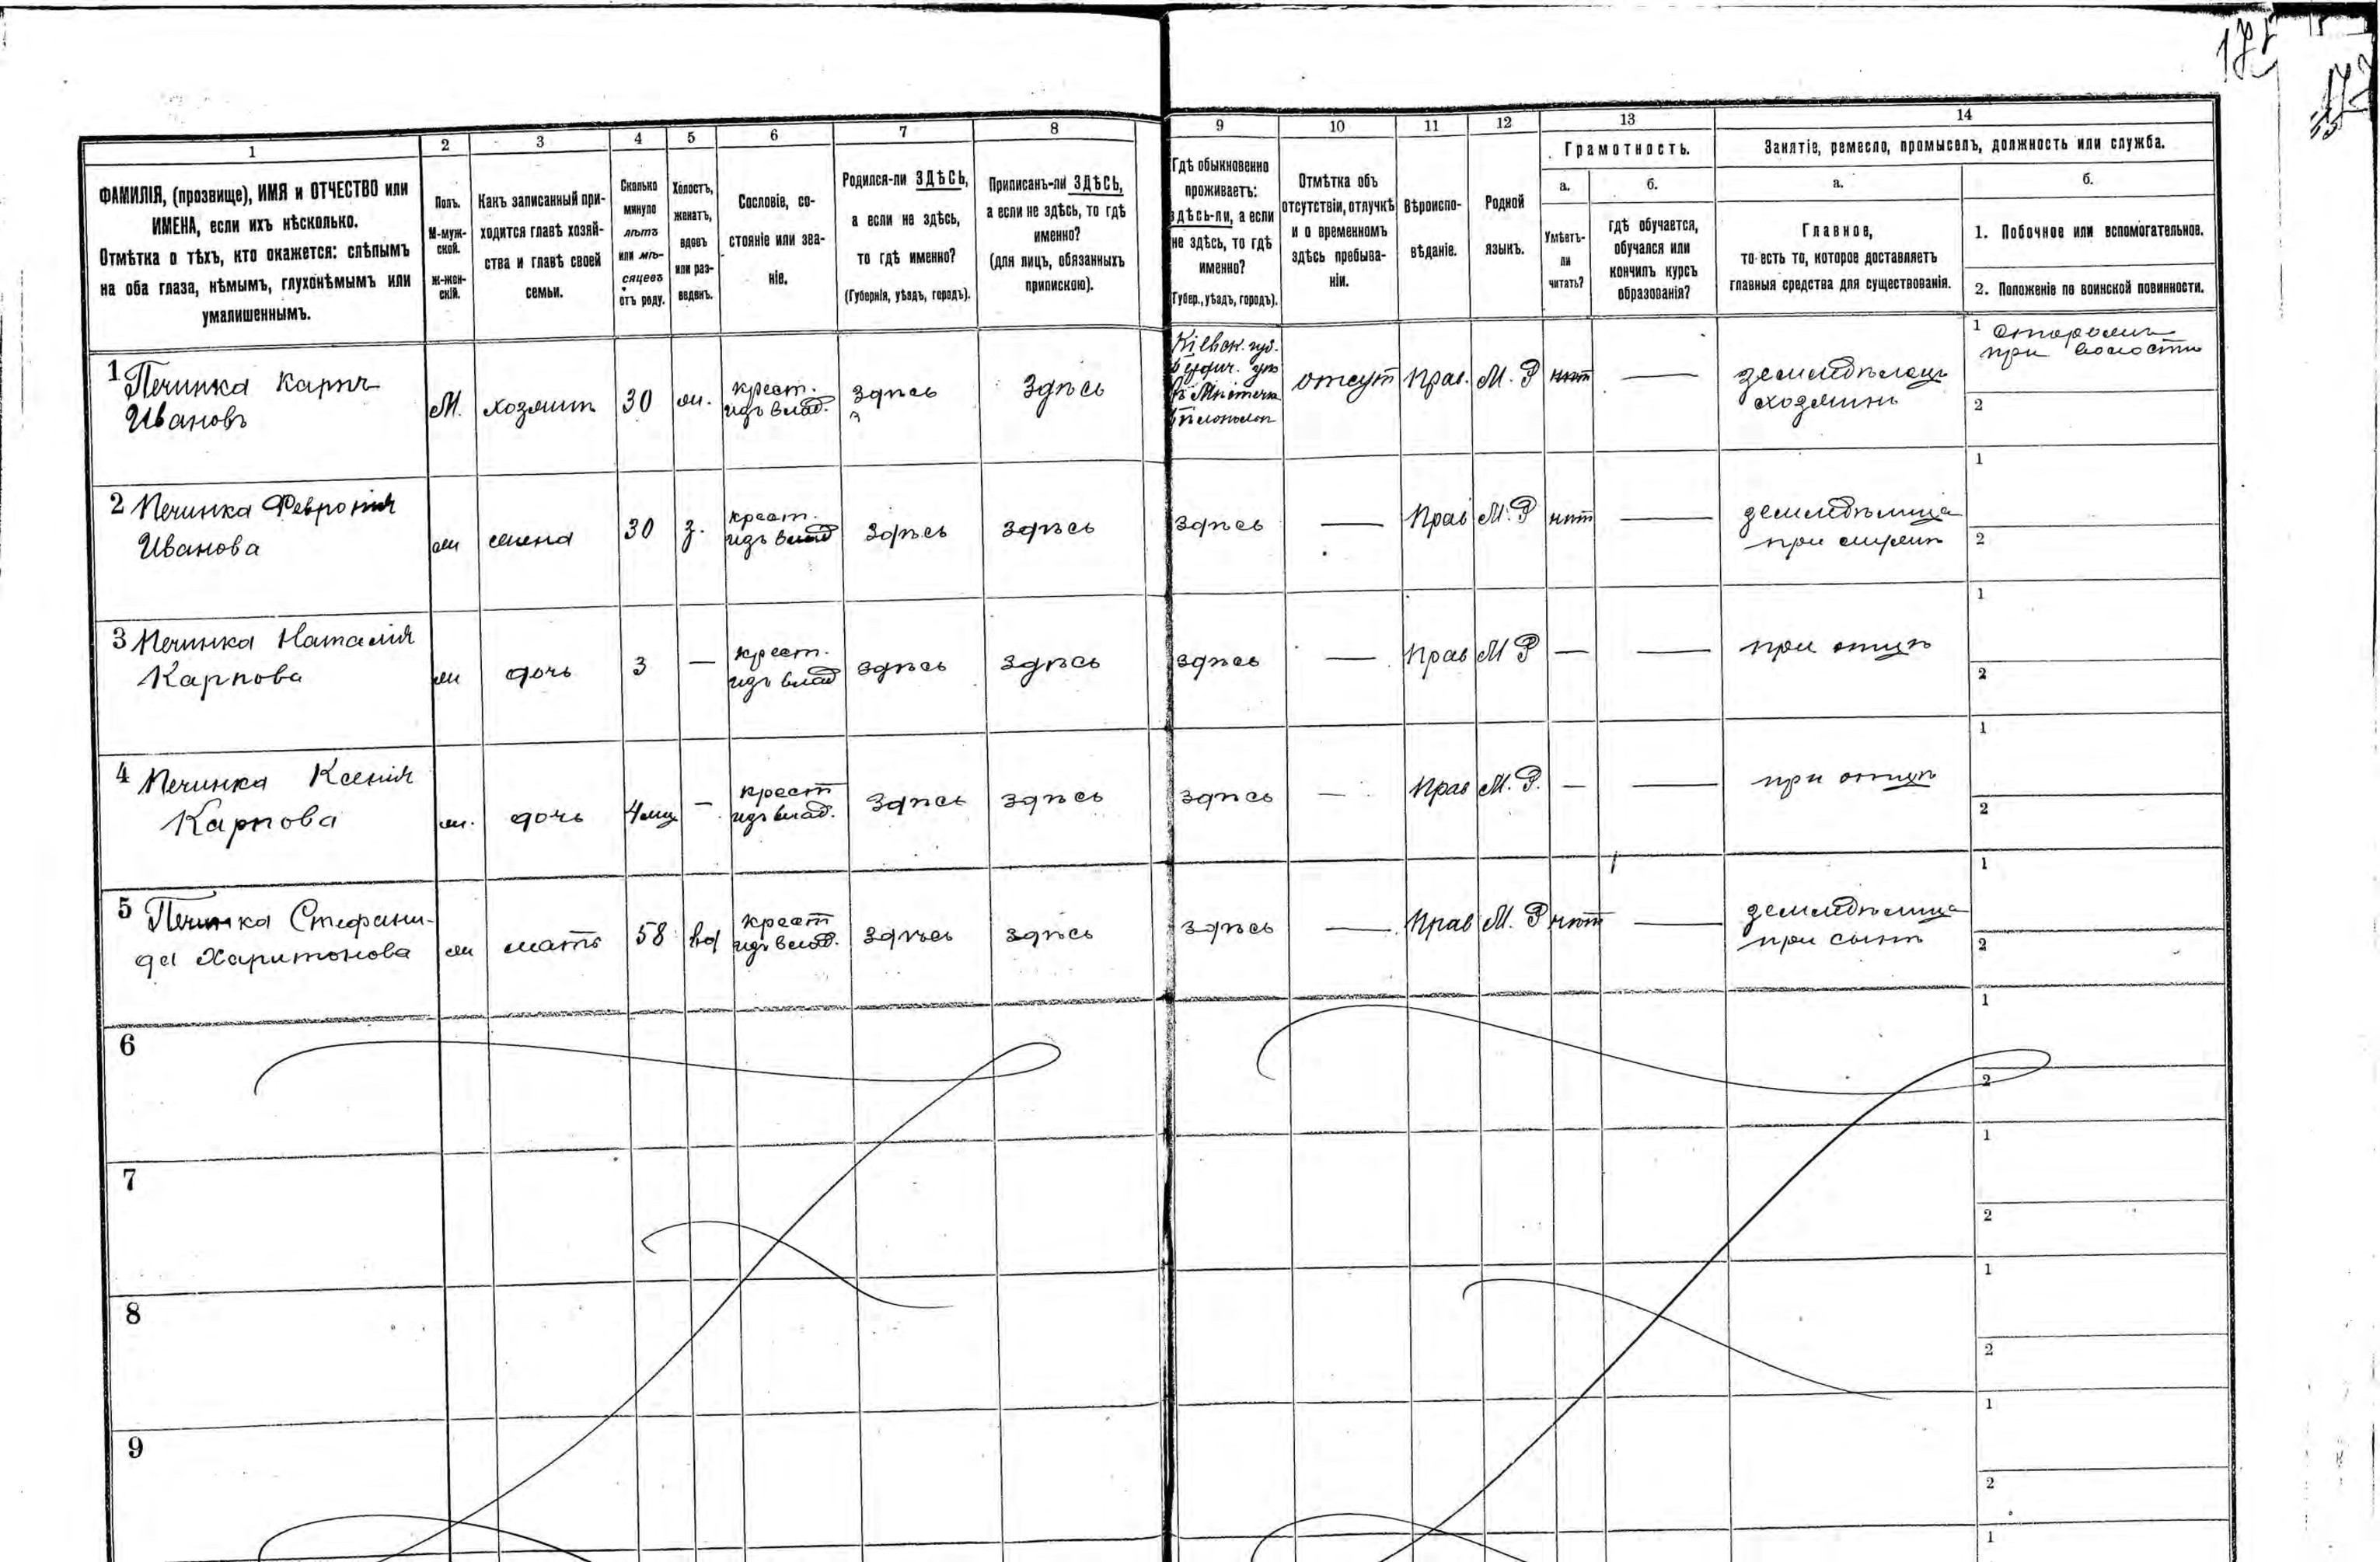 1
2
3
4
5
6
7
8
9
10
11
12
13
14
ФАМИЛІЯ, (прозвище), ИМЯ и ОТЧЕСТВО или
ИМЕНА, если ихъ нѣсколько.
Отмѣтка о тѣхъ, кто окажется: слѣпымъ
на оба глаза, нѣмымъ, глухонѣмымъ или
умалишеннымъ.
Полъ.
М-муж-
ской.
Ж-жен-
скій.
Какъ записанный при-
ходится главѣ хозяй-
ства и главѣ своей
семьи.
Сколько
минуло
лѣтъ
или мѣ-
сяцевъ
отъ роду.
Холостъ,
женатъ,
вдовъ
или раз-
веденъ.
Сословіе, со-
стояніе или зва-
ніе.
Родился-ли ЗДѢСЬ,
а если не здѣсь,
то гдѣ именно?
(Губернія, уѣздъ, городъ).
Приписанъ-ли ЗДѢСЬ,
а если не здѣсь, то гдѣ
именно?
(для лицъ, обязанныхъ
припискою).
Гдѣ обыкновенно
проживаетъ:
здѣсь-ли, а если
не здѣсь, то гдѣ
именно?
(Губер., уѣздъ, городъ).
Отмѣтка объ
отсутствіи, отлучкѣ
и о временномъ
здѣсь пребыва-
ніи.
Вѣроиспо-
вѣданіе.
Родной
языкъ.
Грамотность.
а.
Умѣетъ-
ли
читать?
б.
гдѣ обучается,
обучался или
кончилъ курсъ
образованія?
Занятіе, ремесло, промыселъ, должность или служба.
а.
Главное,
то есть то, которое доставляетъ
главныя средства для существованія.
б.
1. Побочное или вспомогательное.
2. Положеніе по воинской повинности.
1 Печинка Карпъ
Ивановъ
М.
хозяинъ
30
ж.
крест.
изъ влад.
здѣсь
Здѣсь
Кіевск. губ.
отсут
Прав.
М. Р
нѣт
—
земледѣлецъ
хозяинъ
1
при волости
2
2 Печинка Февронія
Иванова
ж
жена
30
з.
крест.
изъ влад
здѣсь
здѣсь
здѣсь
—
Прав
М. Р
нѣт
—
земледѣлица
при мужѣ
1
2
3 Печинка Наталія
Карпова
ж
дочь
3
—
крест.
изъ влад
здѣсь
здѣсь
здѣсь
—
Прав
М Р
—
—
при отцѣ
1
2
4 Печинка Ксенія
Карпова
ж.
дочь
4 мц
—
крест
изъ влад.
здѣсь
здѣсь
здѣсь
—
Прав
М. Р.
—
—
при отцѣ
1
2
5 Печинка Стефани-
да Харитонова
ж
мать
58
вд
крест
изъ влад.
здѣсь
здѣсь
здѣсь
—
Прав
М. Р
нѣт
—
земледѣлица
при сынѣ
1
2
6
1
2
7
1
2
8
1
2
9
1
2
1